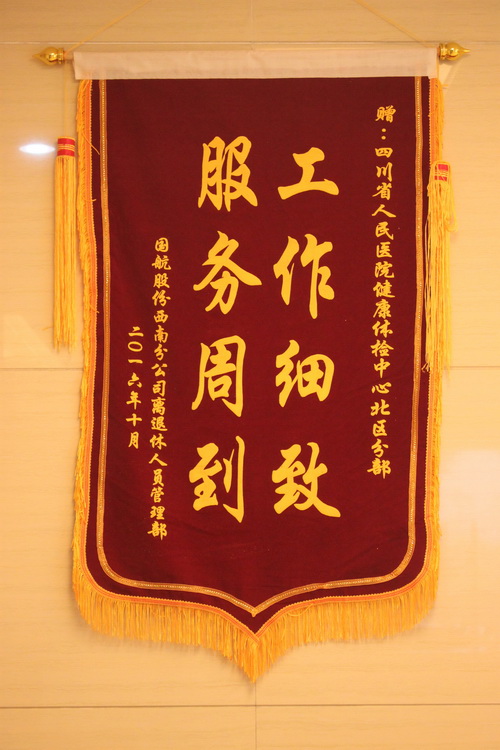 赠：四川省人民医院健康体检中心北区分部
工作细致
服务周到
国航股份西南分公司离退休人员管理部
二〇一六年十月